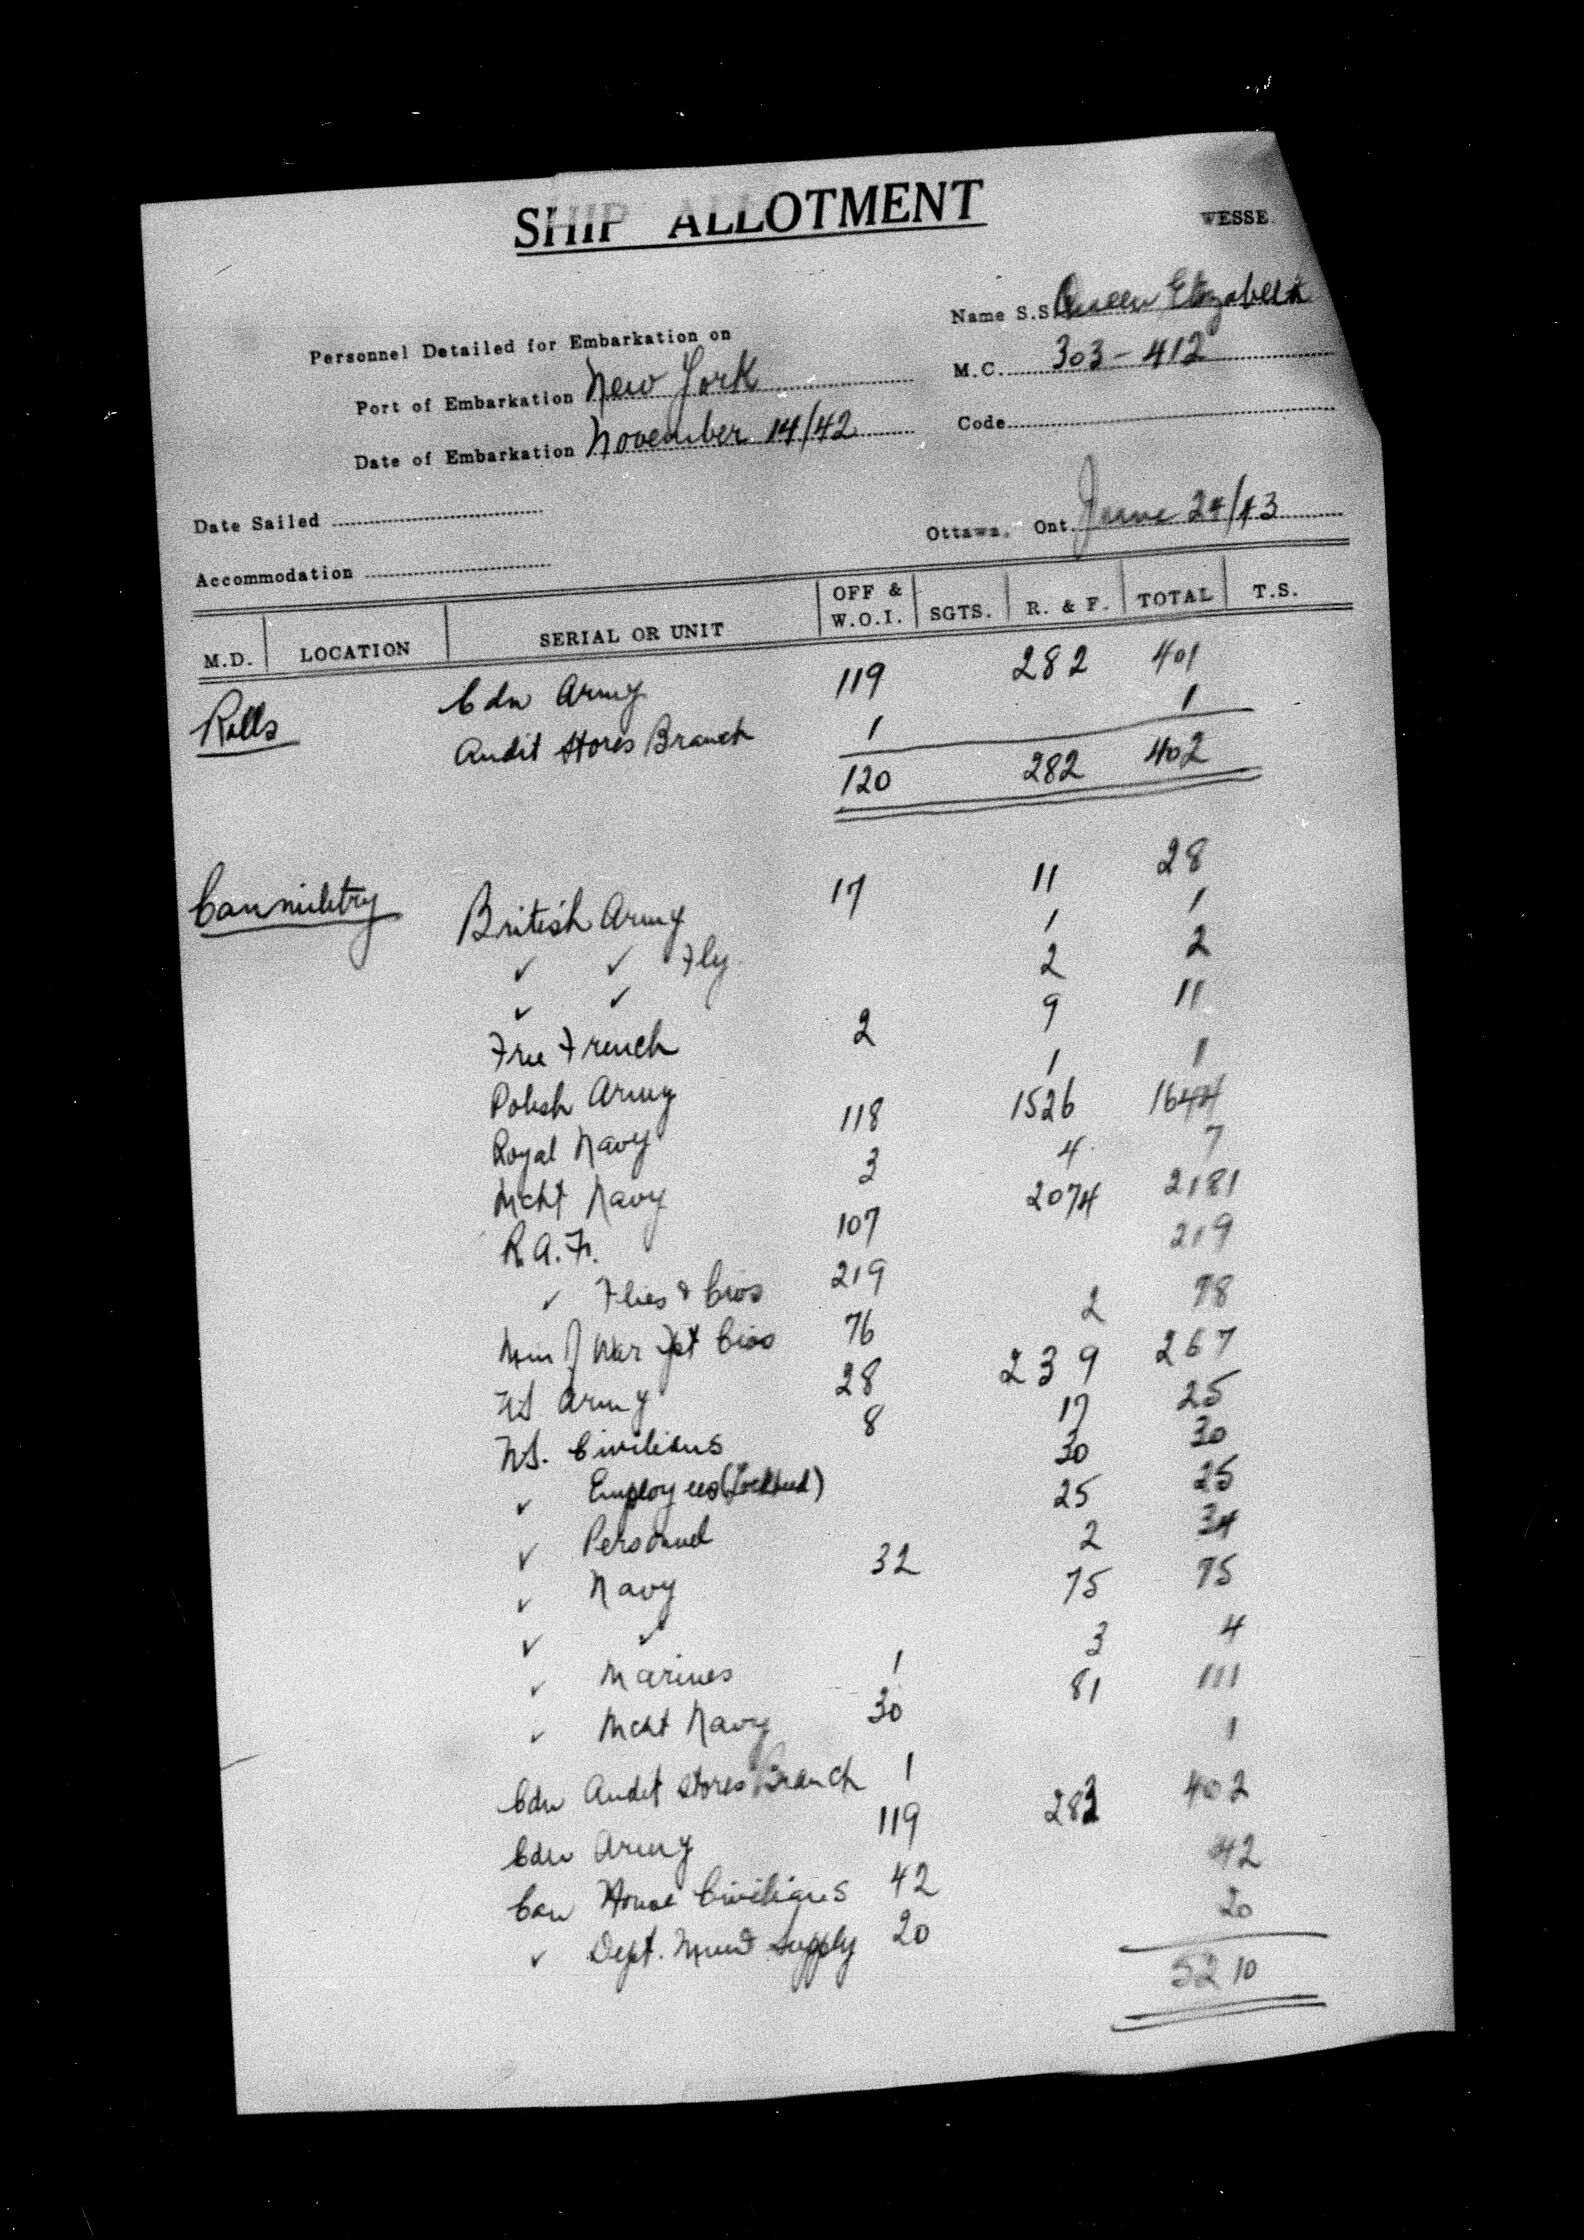 SHIP ALLOTMENT
VESSE
Name S.S. Queen Elizabeth
Personnel Detailed for Embarkation on
M.C. 303-412
Port of Embarkation New York
Code
Date of Embarkation November 14/42
Date Sailed
Ottawa, Ont. June 24/43
Accommodation
M.D. LOCATION SERIAL OR UNIT OFF & W.O.I. SGTS. R. & F. TOTAL T.S.
Rolls Cdn Army 119 282 401
Audit Stores Branch 1 1
120 282 402
Canmiletry British Army 17 11 28
✓ ✓ Fly. 1 1
✓ ✓ 2 2
Free French 2 9 11
Polish Army 1 1
Royal Navy 118 1526 1644
Mcht Navy 3 4 7
R.A.F. 107 2074 2181
✓ Flies & Civs 219 219
Min of War Civs 76 2 78
US Army 28 239 267
US. Civilians 8 17 25
✓ Employees (Lockheed) 30 30
✓ Personnel 25 25
✓ Navy 32 2 34
✓ ✓ 75 75
✓ Marines 1 3 4
✓ Mcht Navy 30 81 111
Cdn Audit Stores Branch 1 1
Cdn Army 119 283 402
Can Civilians 42 42
✓ Dept. Mun & Supply 20 20
5210